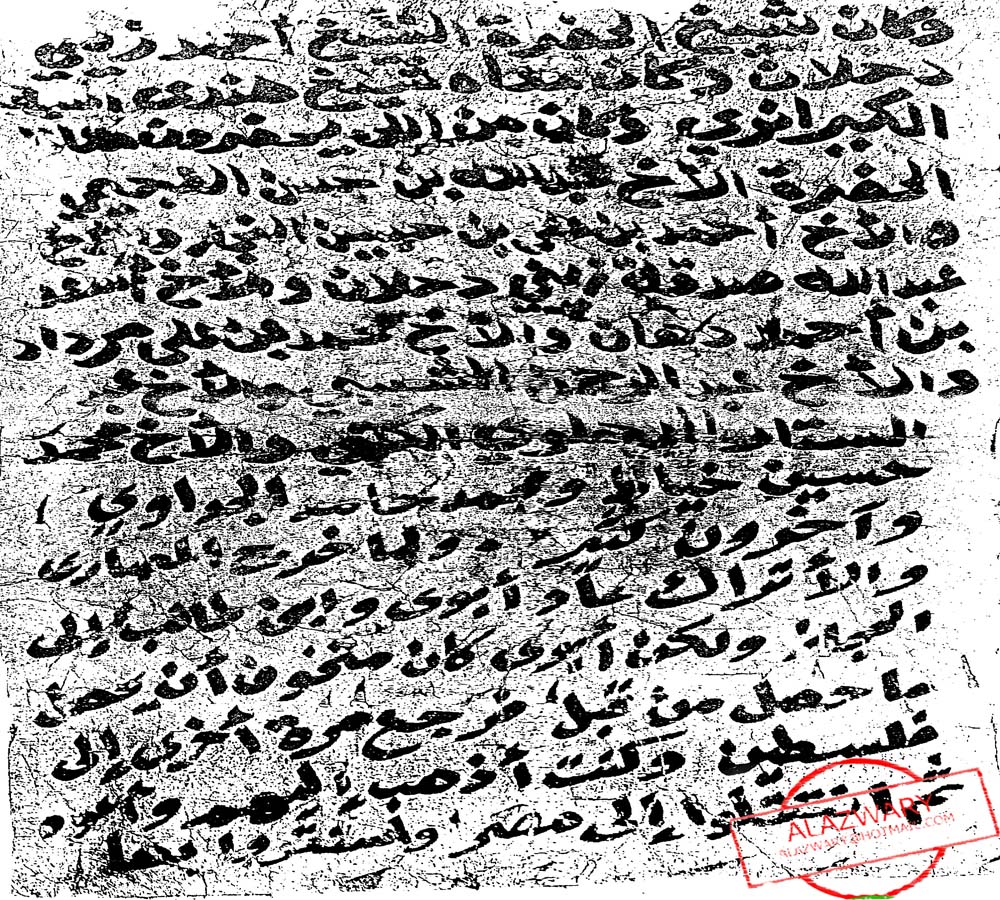 وكان شيخ الحضرة الشيخ أحمد زيني
دحلان وكان معاه شيخ هندي اسمه
الكيرانوي وكان من اللي يحضرون هذه
الحضرة الأخ عبدالله بن حسن العجيمي
والأخ أحمد بن علي بن حسين النجار والأخ
عبدالله صدقة زيني دحلان والأخ أسعد
بن أحمد دهان والأخ محمد بن علي مرداد
والأخ عبدالرحمن الشيبي والأخ عبد
الستار الدهلوي الكتبي والأخ محمد
حسين خياط ومحمد حامد الجداوي
وآخرون كثير . ولما خرج المصاري
والأتراك عاد أبوي وابن طالب إلى
الحجاز ولكن أبوي كان متخوف أن يحصل
ما حصل من قبل فرجع مرة أخرى إلى
فلسطين وكنت أذهب إليهم
ثم انتقلوا إلى مصر واستقروا بها
ALAZWARY
ALAZWARY@HOTMAIL.COM